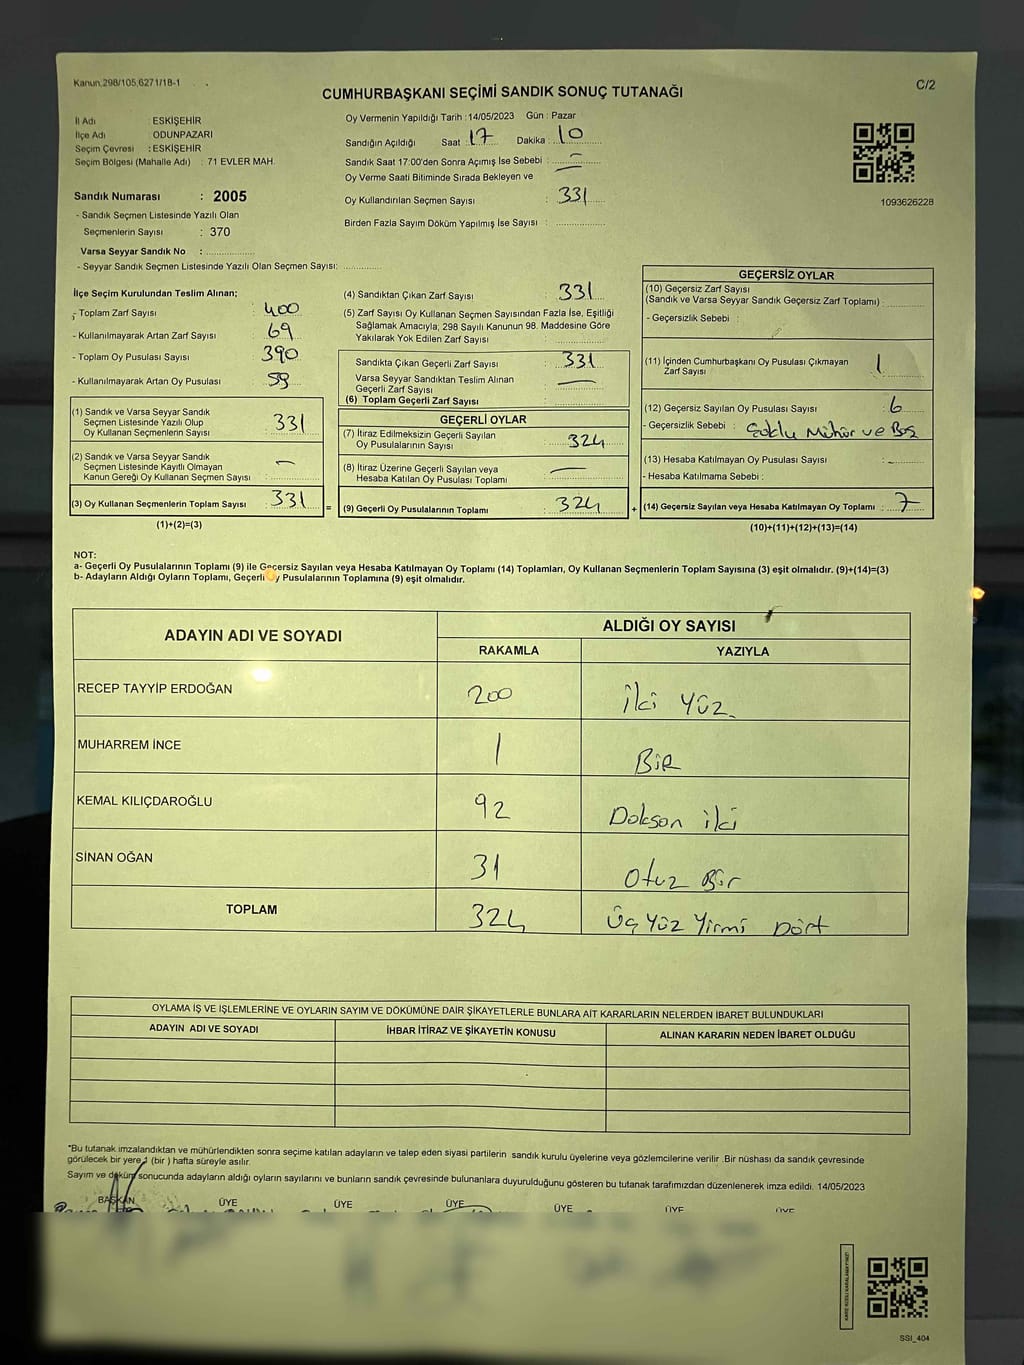 Kanun:298/105,6271/18-1
C/2
CUMHURBAŞKANI SEÇİMİ SANDIK SONUÇ TUTANAĞI
İl Adı : ESKİŞEHİR
İlçe Adı : ODUNPAZARI
Seçim Çevresi : ESKİŞEHİR
Seçim Bölgesi (Mahalle Adı) : 71 EVLER MAH.
Sandık Numarası : 2005
- Sandık Seçmen Listesinde Yazılı Olan
Seçmenlerin Sayısı : 370
Varsa Seyyar Sandık No :
- Seyyar Sandık Seçmen Listesinde Yazılı Olan Seçmen Sayısı:
Oy Vermenin Yapıldığı Tarih :14/05/2023 Gün : Pazar
Sandığın Açıldığı Saat : 17 Dakika : 10
Sandık Saat 17:00'den Sonra Açımış İse Sebebi : -
Oy Verme Saati Bitiminde Sırada Bekleyen ve
Oy Kullandırılan Seçmen Sayısı : 331
Birden Fazla Sayım Döküm Yapılmış İse Sayısı :
1093626228
İlçe Seçim Kurulundan Teslim Alınan;
- Toplam Zarf Sayısı : 400
- Kullanılmayarak Artan Zarf Sayısı : 69
- Toplam Oy Pusulası Sayısı : 390
- Kullanılmayarak Artan Oy Pusulası : 59
(1) Sandık ve Varsa Seyyar Sandık
Seçmen Listesinde Yazılı Olup
Oy Kullanan Seçmenlerin Sayısı : 331
(2) Sandık ve Varsa Seyyar Sandık
Seçmen Listesinde Kayıtlı Olmayan
Kanun Gereği Oy Kullanan Seçmen Sayısı : -
(3) Oy Kullanan Seçmenlerin Toplam Sayısı : 331
(1)+(2)=(3)
=
(4) Sandıktan Çıkan Zarf Sayısı : 331
(5) Zarf Sayısı Oy Kullanan Seçmen Sayısından Fazla İse, Eşitliği
Sağlamak Amacıyla, 298 Sayılı Kanunun 98. Maddesine Göre
Yakılarak Yok Edilen Zarf Sayısı :
Sandıkta Çıkan Geçerli Zarf Sayısı : 331
Varsa Seyyar Sandıktan Teslim Alınan
Geçerli Zarf Sayısı : -
(6) Toplam Geçerli Zarf Sayısı :
GEÇERLİ OYLAR
(7) İtiraz Edilmeksizin Geçerli Sayılan
Oy Pusulalarının Sayısı : 324
(8) İtiraz Üzerine Geçerli Sayılan veya
Hesaba Katılan Oy Pusulası Toplamı : -
(9) Geçerli Oy Pusulalarının Toplamı : 324
+
GEÇERSİZ OYLAR
(10) Geçersiz Zarf Sayısı
(Sandık ve Varsa Seyyar Sandık Geçersiz Zarf Toplamı) :
- Geçersizlik Sebebi :
(11) İçinden Cumhurbaşkanı Oy Pusulası Çıkmayan
Zarf Sayısı : 1
(12) Geçersiz Sayılan Oy Pusulası Sayısı : 6
- Geçersizlik Sebebi : Çoklu Mühür ve Boş
(13) Hesaba Katılmayan Oy Pusulası Sayısı : -
- Hesaba Katılmama Sebebi :
(14) Geçersiz Sayılan veya Hesaba Katılmayan Oy Toplamı : 7
(10)+(11)+(12)+(13)=(14)
NOT:
a- Geçerli Oy Pusulalarının Toplamı (9) ile Geçersiz Sayılan veya Hesaba Katılmayan Oy Toplamı (14) Toplamları, Oy Kullanan Seçmenlerin Toplam Sayısına (3) eşit olmalıdır. (9)+(14)=(3)
b- Adayların Aldığı Oyların Toplamı, Geçerli Oy Pusulalarının Toplamına (9) eşit olmalıdır.
ADAYIN ADI VE SOYADI ALDIĞI OY SAYISI
RAKAMLA YAZIYLA
RECEP TAYYİP ERDOĞAN 200 İki Yüz
MUHARREM İNCE 1 Bir
KEMAL KILIÇDAROĞLU 92 Doksan iki
SİNAN OĞAN 31 Otuz Bir
TOPLAM 324 Üç Yüz Yirmi Dört
OYLAMA İŞ VE İŞLEMLERİNE VE OYLARIN SAYIM VE DÖKÜMÜNE DAİR ŞİKAYETLERLE BUNLARA AİT KARARLARIN NELERDEN İBARET BULUNDUKLARI
ADAYIN ADI VE SOYADI İHBAR İTİRAZ VE ŞİKAYETİN KONUSU ALINAN KARARIN NEDEN İBARET OLDUĞU
*Bu tutanak imzalandıktan ve mühürlendikten sonra seçime katılan adayların ve talep eden siyasi partilerin sandık kurulu üyelerine veya gözlemcilerine verilir .Bir nüshası da sandık çevresinde
görülecek bir yere 1 (bir ) hafta süreyle asılır.
Sayım ve döküm sonucunda adayların aldığı oyların sayılarını ve bunların sandık çevresinde bulunanlara duyurulduğunu gösteren bu tutanak tarafımızdan düzenlenerek imza edildi. 14/05/2023
BAŞKAN ÜYE ÜYE ÜYE ÜYE ÜYE
SSI_404